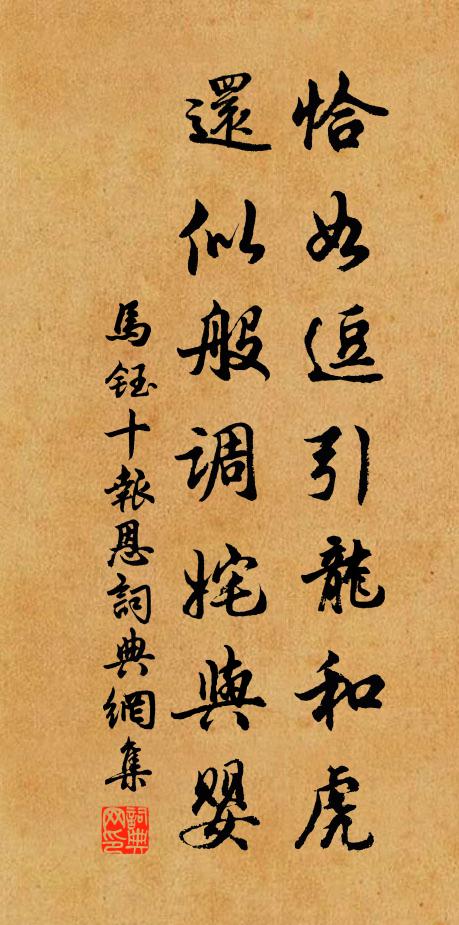 恰如逗引龍和虎
還似般調姹與嬰
馬鈺十報恩詞典網集
詞典網印